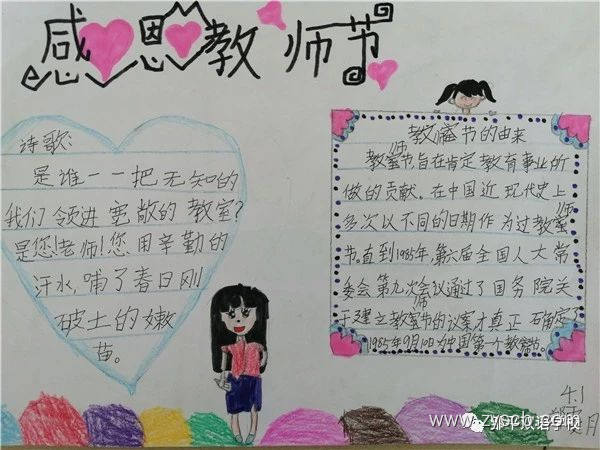 感恩教师节
诗歌:
是谁一一把无知的
我们领进宽敞的教室?
是您!老师!您用辛勤的
汗水,哺了春日刚
破土的嫩
苗。
教师节的由来
教师节旨在肯定教育事业所
做的贡献。在中国近现代史上
多次以不同的日期作为过教师
节。直到1985年,第六届全国人大常
委会第九次会议通过了国务院关
于建立教师节的议案才真正确定了
1985年9月10日为中国第一个教师节。
4.1
www.zyscb.com